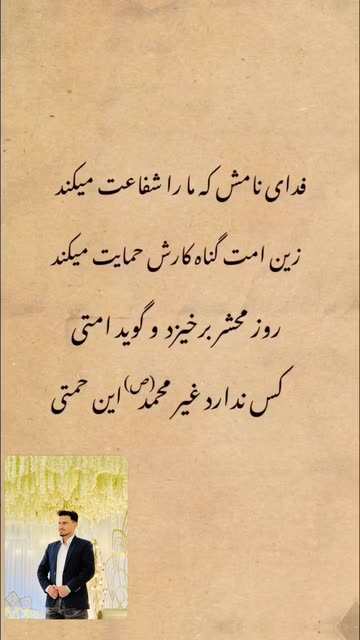 فدای نامش که ما را شفاعت میکند
زین امت گناه کارش حمایت میکند
روز محشر برخیزد و گوید امتی
کس ندارد غیر محمد(ص) این حمتی